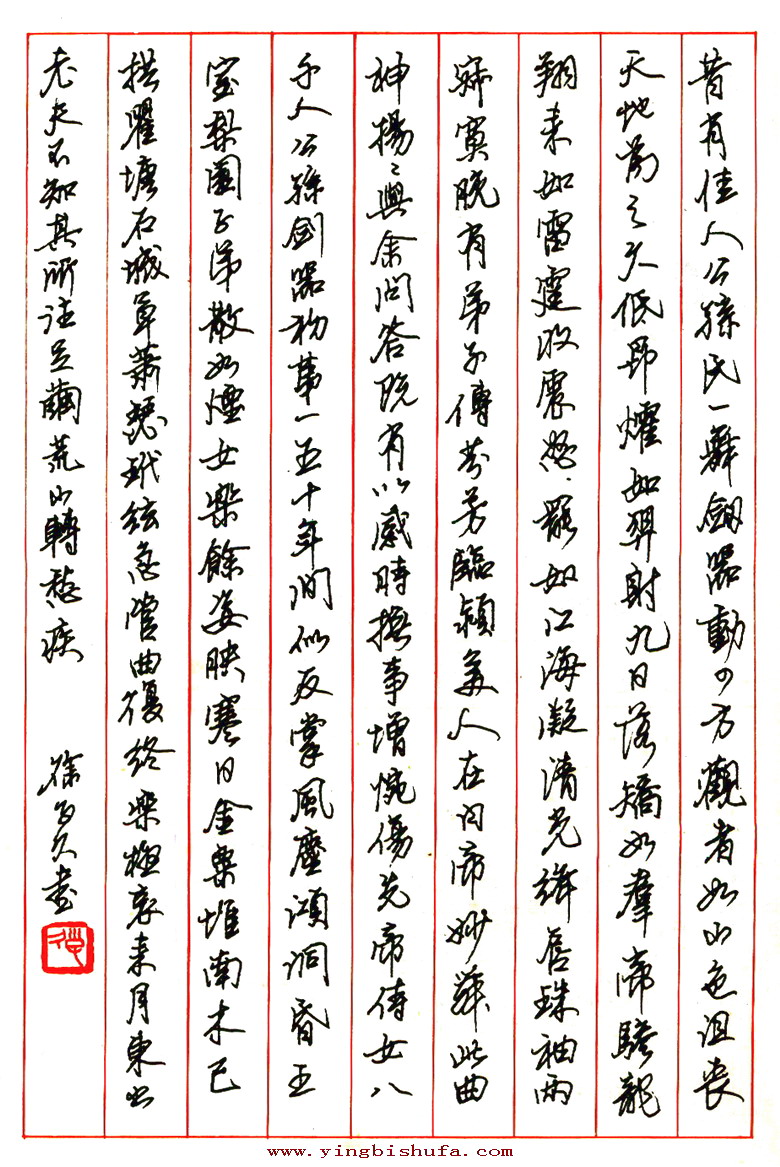 昔有佳人公孫氏一舞劍器動四方觀者如山色沮喪
天地爲之久低昂㸌如羿射九日落矯如羣帝驂龍
翔来如雷霆收震怒罷如江海凝清光絳唇珠袖兩
寂寞晚有弟子傳芬芳臨潁美人在白帝妙舞此曲
神揚〻與余問答既有以感時撫事增惋傷先帝侍女八
千人公孫劍器初第一五十年間似反掌風塵澒洞昏王
室梨園子弟散如煙女樂餘姿映寒日金粟堆南木已
拱瞿塘石城草蕭瑟玳絃急管曲復終樂極哀来月東出
老夫不知其所往足繭荒山轉愁疾 徐 書
www.yingbishufa.com